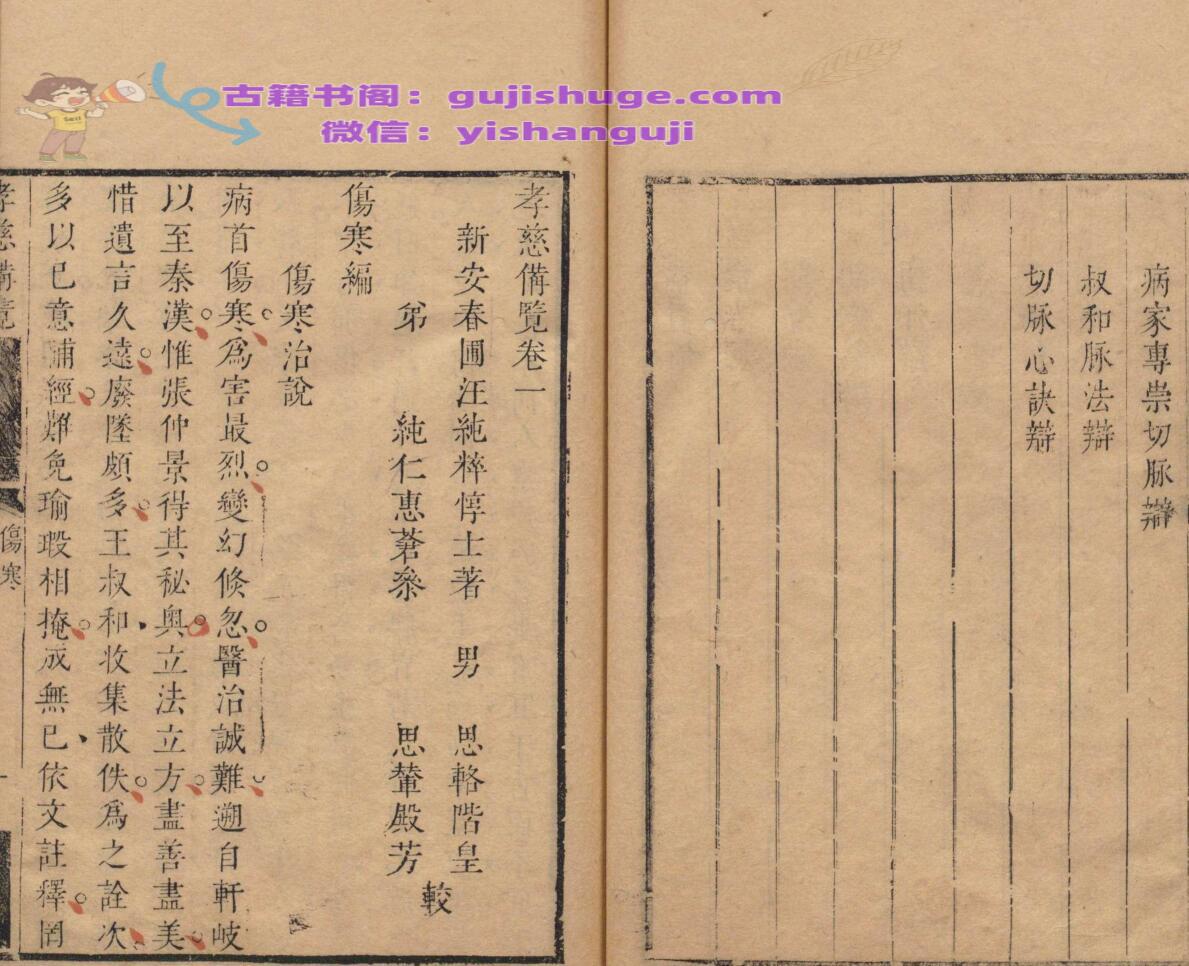 古籍书阁：gujishuge.com
微信：yishanguji
病家專崇切脉辯
叔和脉法辯
切脉心訣辯
孝慈備覽卷一
新安春圃汪純粹惇士著　男　思輅階皇
弟　純仁惠蒼叅　思輦殿芳
較
傷寒編
傷寒治說
病首傷寒爲害最烈變幻倏忽醫治誠難遡自軒岐
以至秦漢惟張仲景得其秘奥立法立方盡善盡美
惜遺言久遠廢墜頗多王叔和收集散佚爲之詮次
多以已意補經難免瑜瑕相掩成無已依文註釋罔
孝慈備覽
傷寒
一